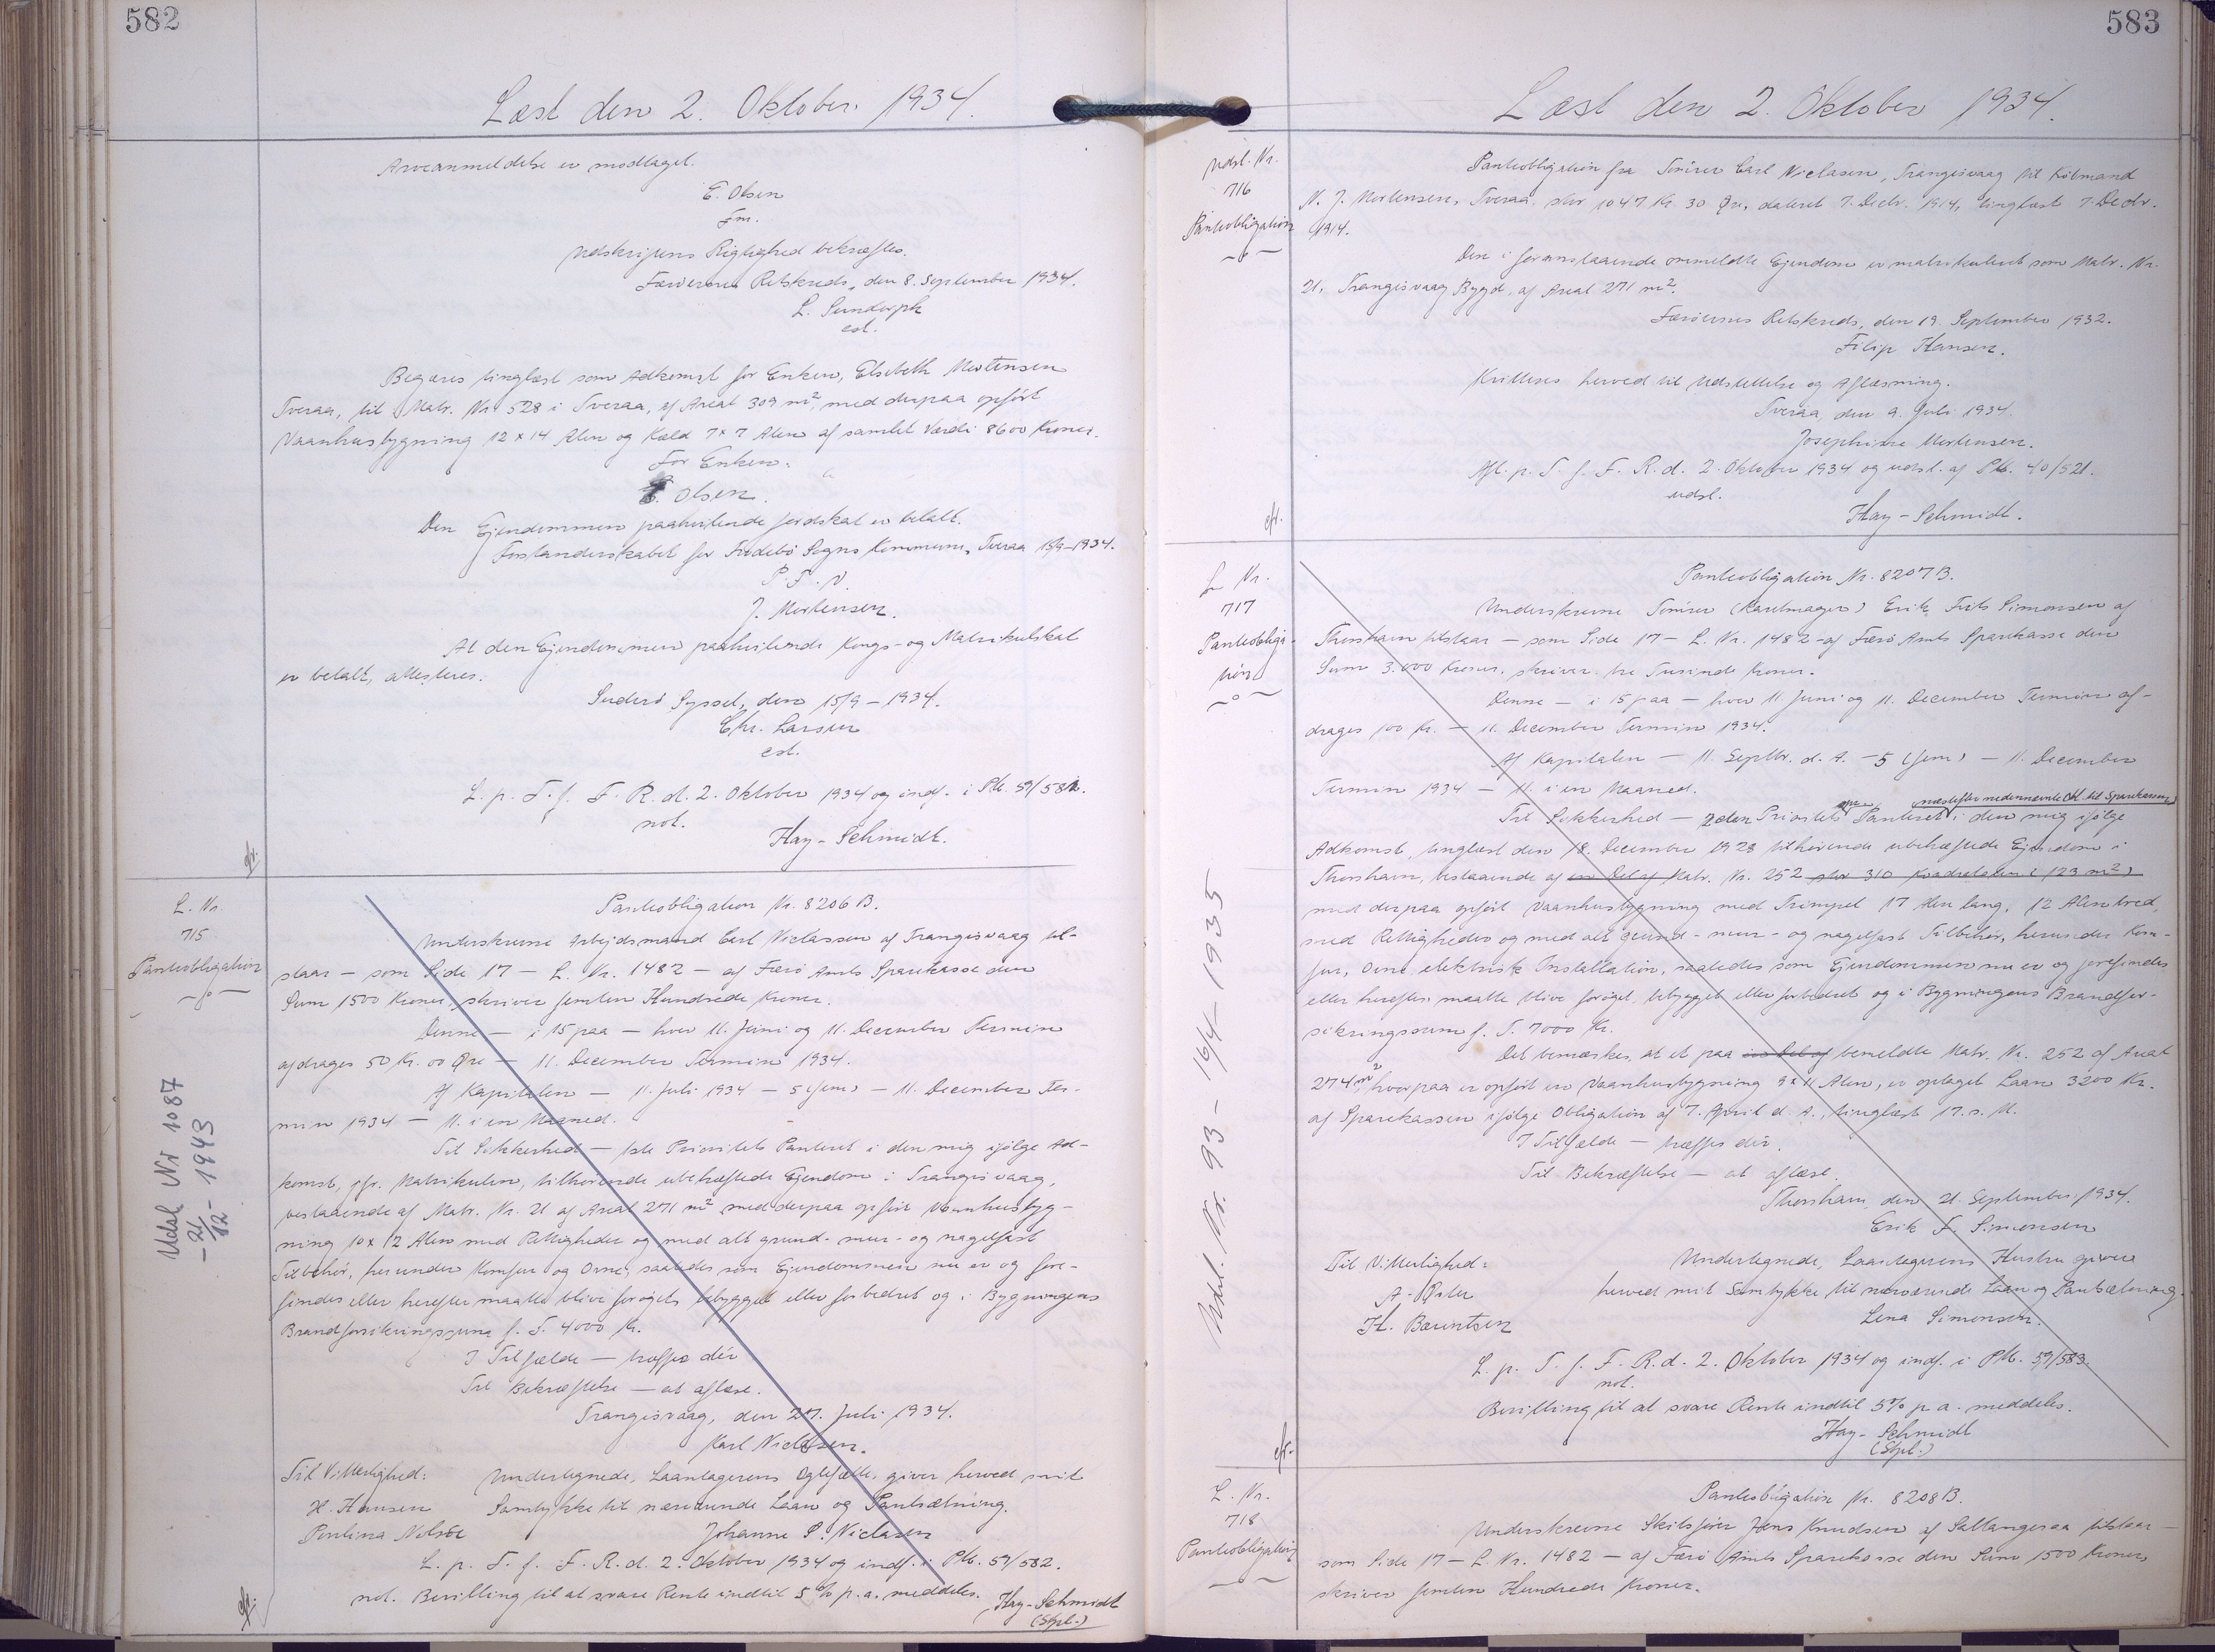 582
Læst den 2. Oktober 1934.
Arveanmeldelse er modtaget.
E. Olsen
fm.
Udskriftens Rigtighed bekræftes.
Færøernes Retskreds, den 8. September 1934.
L. Sundorph
cst.
Begæres tinglæst som Adkomst for Enken, Elsebeth Mortensen
Tveraa, til Matr. Nr. 528 i Tveraa, af Areal 309 m², med derpaa opført
Vaanhusbygning 12 x 14 Alen og Kæld 7 x 7 Alen af samlet Værdi 8600 Kroner.
For Enken:
E. Olsen.
Den Ejendommen paahvilende Jordskat er betalt.
Forstanderskabet for Frodebö Sogns Kommune, Tveraa 15/9-1934.
P. F. V.
J. Mortensen.
At den Ejendommen paahvilende Kongs- og Matrikulskat
er betalt, attesteres.
Suderö Syssel, den 15/9 - 1934.
Chr. Larsen
cst.
L. p. T. f. F. R. d. 2. Oktober 1934 og indf. i Pb. 59/582.
not.
Hay-Schmidt.
cfr.
L. Nr.
715
Panteobligation
Panteobligation Nr. 8206 B.
Underskrevne Arbejdsmand Carl Niclassen af Trangisvaag til-
staar - som Side 17 - L. Nr. 1482 - af Færø Amts Sparekasse den
Sum 1500 Kroner, skriver femten Hundrede Kroner.
Denne - i 15 paa - hver 11. Juni og 11. December Termin
afdrages 50 Kr. 00 Øre - 11. December Termin 1934.
Af Kapitalen - 11. Juli 1934 - 5 (fem) - 11. December Ter-
min 1934 - 11. i en Maaned.
Til Sikkerhed - 1ste Prioritets Panteret i den mig ifølge Ad-
komst, jfr. Matrikulen, tilhørende ubehæftede Ejendom i Trangisvaag,
bestaaende af Matr. Nr. 21 af Areal 271 m² med derpaa opført Vaanhusbyg-
ning 10 x 12 Alen med Rettigheder og med alt grund- mur- og nagelfast
Tilbehör, herunder Komfur og Ovne, saaledes som Ejendommen nu er og fore-
findes eller herefter maatte blive forøget, bebygget eller forbedret og i Bygningens
Brandforsikringssum f. T. 4000 Kr.
I Tilfælde - træffes dér
Til Bekræftelse - at aflæse.
Trangisvaag, den 27. Juli 1934.
Karl Niclasen.
Til Vitterlighed:
Undertegnede, Laantagerens Ægtefælle, giver herved mit
H. Hansen
Samtykke til nærværende Laan og Pantsætning.
Paulina Nolsöe
Johanne S. Niclasen
L. p. T. f. F. R. d. 2. Oktober 1934 og indf. i Pb. 59/582.
not. Bevilling til at svare Rente indtil 5 % p. a. meddeles.
Hay-Schmidt
(Stpl.)
cfr.
Udsl Nr 1087
- 21/12 - 1943
583
Læst den 2. Oktober 1934.
Udsl. Nr.
716
Panteobligation
Panteobligation fra Tømrer Carl Niclasen, Trangisvaag til Købmand
N. J. Mortensen, Tveraa. stor 1047 Kr. 30 Øre, dateret 7. Decbr. 1914, tinglæst 7. Decbr.
1914.
Den i foranstaaende ommeldte Ejendom er matrikuleret som Matr. Nr.
21, Trangisvaag Bygd, af Areal 271 m².
Færöernes Retskreds, den 19. September 1932.
Filip Hansen.
Kvitteres herved til Udslettelse og Aflæsning.
Tveraa, den 9. Juli 1934.
Josephine Mortensen.
Afl. p. T. f. F. R. d. 2. Oktober 1934 og udsl. af Pb. 40/521.
udsl.
Hay-Schmidt.
cfr.
L. Nr.
717
Panteobliga-
tion
Panteobligation Nr. 8207 B.
Underskrevne Tömrer (Karetmager) Erik Frits Simonsen af
Thorshavn tilstaar - som Side 17 - L. Nr. 1482 - af Færø Amts Sparekasse den
Sum 3.000 Kroner, skriver tre Tusinde Kroner.
Denne - i 15 paa - hver 11. Juni og 11. December Termin af-
drages 100 Kr. - 11. December Termin 1934.
Af Kapitalen - 11. Septbr. d. A. - 5 (fem) - 11. December
Termin 1934 - 11. i en Maaned.
næstefter nedennævnte Obl. til Sparekassen
Til Sikkerhed - 2den Prioritets Panteret i den mig ifølge
Adkomst, tinglæst den 18. December 1928 tilhørende ubehæftede Ejendom i
Thorshavn, bestaaende af en Del af Matr. Nr. 252 stor 310 Kvadratalen (123 m²)
med derpaa opført Vaanhusbygning med Trempel 17 Alen lang, 12 Alen bred,
med Rettigheder og med alt grund- mur- og nagelfast Tilbehör, herunder Kom-
fur, Ovne, elektrisk Installation, saaledes som Ejendommen nu er og forefindes
eller herefter maatte blive forøget, bebygget eller forbedret og i Bygningens Brandfor-
sikringssum f. T. 7000 Kr.
Det bemærkes, at et paa en Del af bemeldte Matr. Nr. 252 af Areal
274 m² hvorpaa er opført en Vaanhusbygning 9 x 11 Alen, er optaget Laan 3200 Kr.
af Sparekassen ifølge Obligation af 7. April d. A., tinglæst 17. s. M.
I Tilfælde - træffes dér.
Til Bekræftelse - at aflæse.
Thorshavn, den 21. September 1934.
Erik F. Simonsen
Til Vitterlighed:
Undertegnede, Laantagerens Hustru giver
A. Øster
herved mit Samtykke til nærværende Laan og Pantsætning.
H. Bærentsen
Lena Simonsen.
L. p. T. f. F. R. d. 2. Oktober 1934 og indf. i Pb. 59/583.
not.
Bevilling til at svare Rente indtil 5% p. a. meddeles.
Hay-Schmidt
(Stpl.)
cfr.
Udsl. Nr. 93 - 16/4 - 1935
L. Nr.
718
Panteobligation
Panteobligation Nr. 8208 B.
Underskrevne Skibsfører Jens Knudsen af Saltangeraa tilstaar -
som Side 17 - L. Nr. 1482 - af Færø Amts Sparekasse den Sum 1500 Kroner
skriver femten Hundrede Kroner.